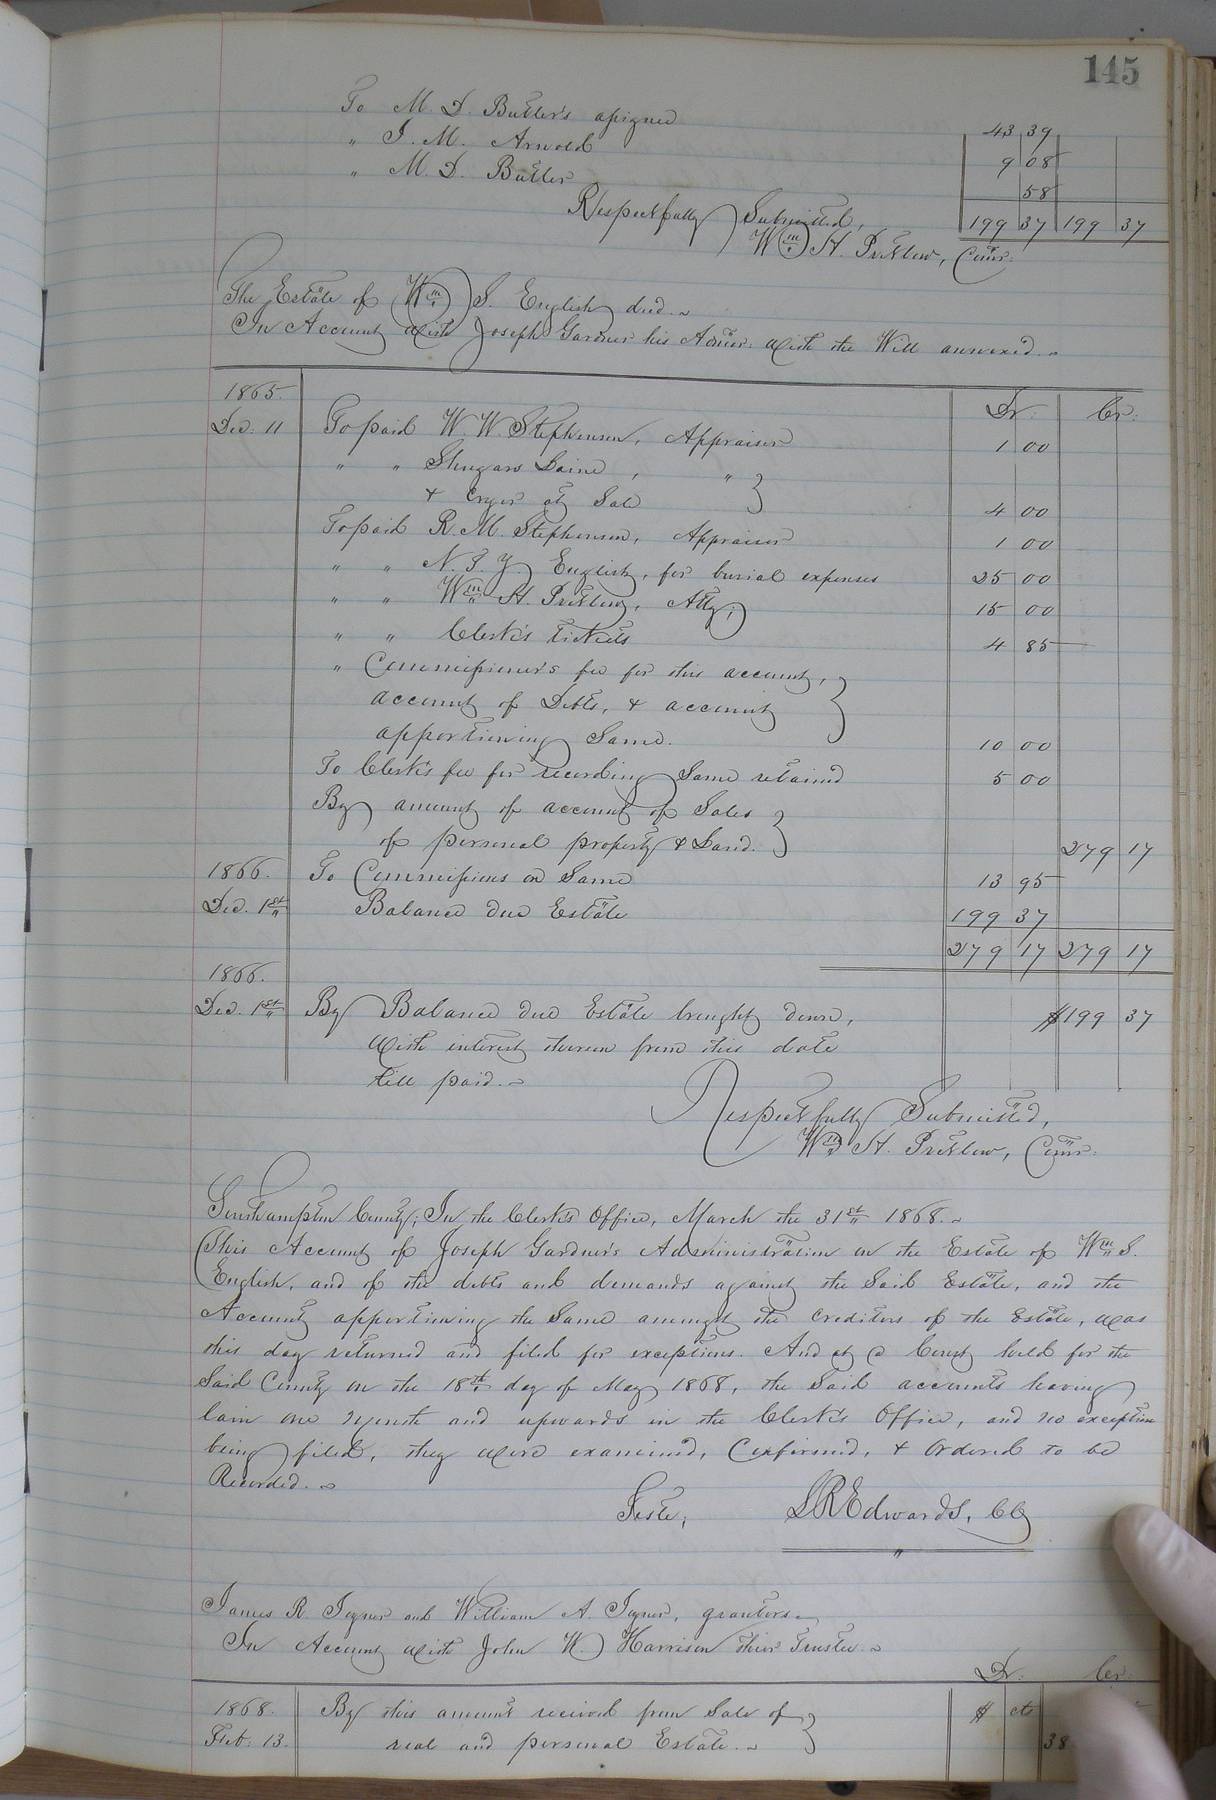 145
To M. D. Butler's assignee 43 39
" J. M. Arnold 9 08
" M. D. Butler 58
199 37 199 37
Respectfully Submitted,
Wm H. Pretlow, Comr.
The Estate of Wm S. English decd.
In Account with Joseph Gardner his Admr. with the Will annexed.
1865. Dr. Cr.
Dec. 11 To paid W. W. Stephenson, Appraiser 1 00
" " Shugars Laine, " }
& Cryer at Sale } 4 00
To paid R. M. Stephenson, Appraiser 1 00
" " N. T. Y. English, for burial expenses 25 00
" " Wm H. Pretlow, Atty; 15 00
" " Clerk's tickets 4 85
" Commissioner's fee for this account, }
account of Debts, & account
apportioning Same. 10 00
To Clerk's fee for recording Same retained 5 00
By amount of account of Sales }
of personal property & Land. 279 17
1866. To Commissions on Same 13 95
Dec. 1st Balance due Estate 199 37
279 17 279 17
1866.
Dec. 1st By Balance due Estate brought down, $199 37
with interest thereon from this date
till paid.
Respectfully Submitted,
Wm H. Pretlow, Comr.
Southampton County; In the Clerk's Office, March the 31st 1868.
This Account of Joseph Gardner's Administration on the Estate of Wm S.
English, and of the debts and demands against the Said Estate, and the
Account apportioning the Same amongst the creditors of the Estate, was
this day returned and filed for exceptions. And at a Court held for the
Said County on the 18th day of May 1868, the Said accounts having
lain one month and upwards in the Clerk's Office, and no exception
being filed, they were examined, Confirmed, & Ordered to be
Recorded.
Teste, L R Edwards, CC
James R. Joyner and William A. Joyner, grantors
In Account with John W. Harrison their Trustee.
Dr. Cr.
1868. By this amount received from Sale of } $ cts
Feb. 13. real and personal Estate. 38